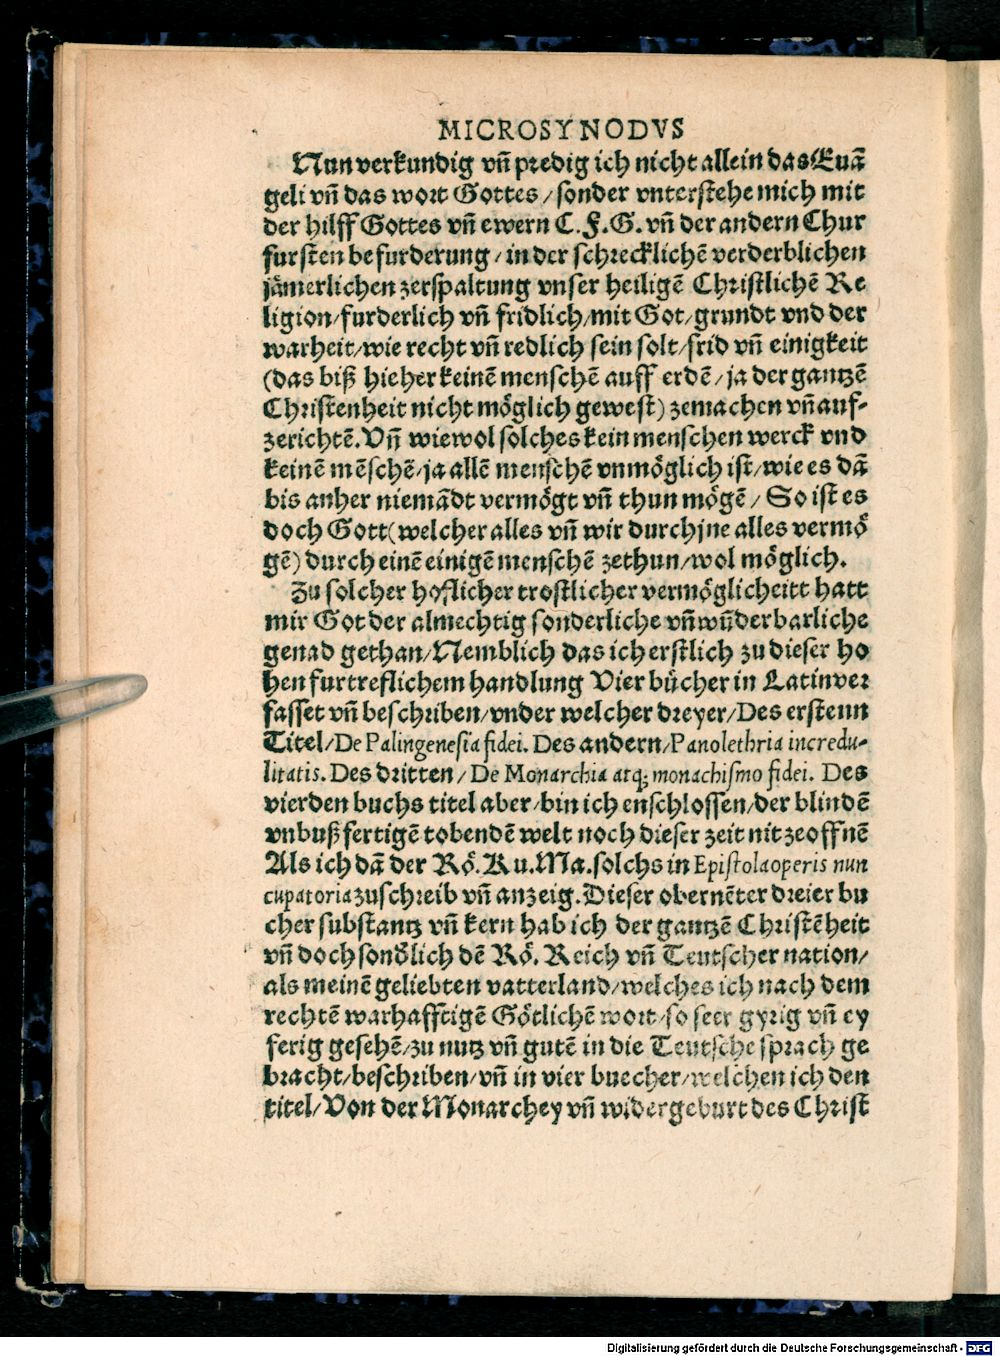 MICROSYNODVS
Nun verkundig vñ predig ich nicht allein das Euã
geli vñ das wort Gottes / sonder vnterstehe mich mit
der hilff Gottes vñ ewern C. F. G. vñ der andern Chur
fursten befurderung / in der schrecklichẽ verderblichen
jämerlichen zerspaltung vnser heiligẽ Christlichẽ Re
ligion / furderlich vñ fridlich / mit Got / grundt vnd der
warheit / wie recht vñ redlich sein solt / frid vñ einigkeit
(das biß hieher keinẽ menschẽ auff erdẽ / ja der gantzẽ
Christenheit nicht möglich gewest) zemachen vñ auf-
zerichtẽ. Vñ wiewol solches kein menschen werck vnd
keinẽ mẽschẽ / ja allẽ menschẽ vnmöglich ist / wie es dã
bis anher niemãdt vermögt vñ thun mögẽ / So ist es
doch Gott (welcher alles vñ wir durch jne alles vermö
gẽ) durch einẽ einigẽ menschẽ zethun / wol möglich.
Zu solcher hoflicher trostlicher vermöglicheitt hatt
mir Got der almechtig sonderliche vñ wũderbarliche
genad gethan / Nemblich das ich erstlich zu dieser ho
hen furtreflichem handlung Vier bücher in Latin ver
fasset vñ beschriben / vnder welcher dreyer / Des erstenn
Titel / De Palingenesia fidei. Des andern / Panolethria incredu-
litatis. Des dritten / De Monarchia atq; monachismo fidei. Des
vierden buchs titel aber / bin ich enschlossen / der blindẽ
vnbußfertigẽ tobendẽ welt noch dieser zeit nit zeoffnẽ
Als ich dã der Rö. Ku. Ma. solchs in Epistola operis nun
cupatoria zuschreib vñ anzeig. Dieser obernẽter dreier bu
cher substantz vñ kern hab ich der gantzẽ Christẽheit
vñ doch sonđlich dẽ Rö. Reich vñ Teutscher nation /
als meinẽ geliebten vatterland / welches ich nach dem
rechtẽ warhafftigẽ Götlichẽ wort / so seer gyrig vñ ey
ferig gesehẽ / zu nutz vñ gutẽ in die Teutsche sprach ge
bracht / beschriben / vñ in vier buecher / welchen ich den
titel / Von der Monarchey vñ widergeburt des Christ
Digitalisierung gefördert durch die Deutsche Forschungsgemeinschaft - DFG